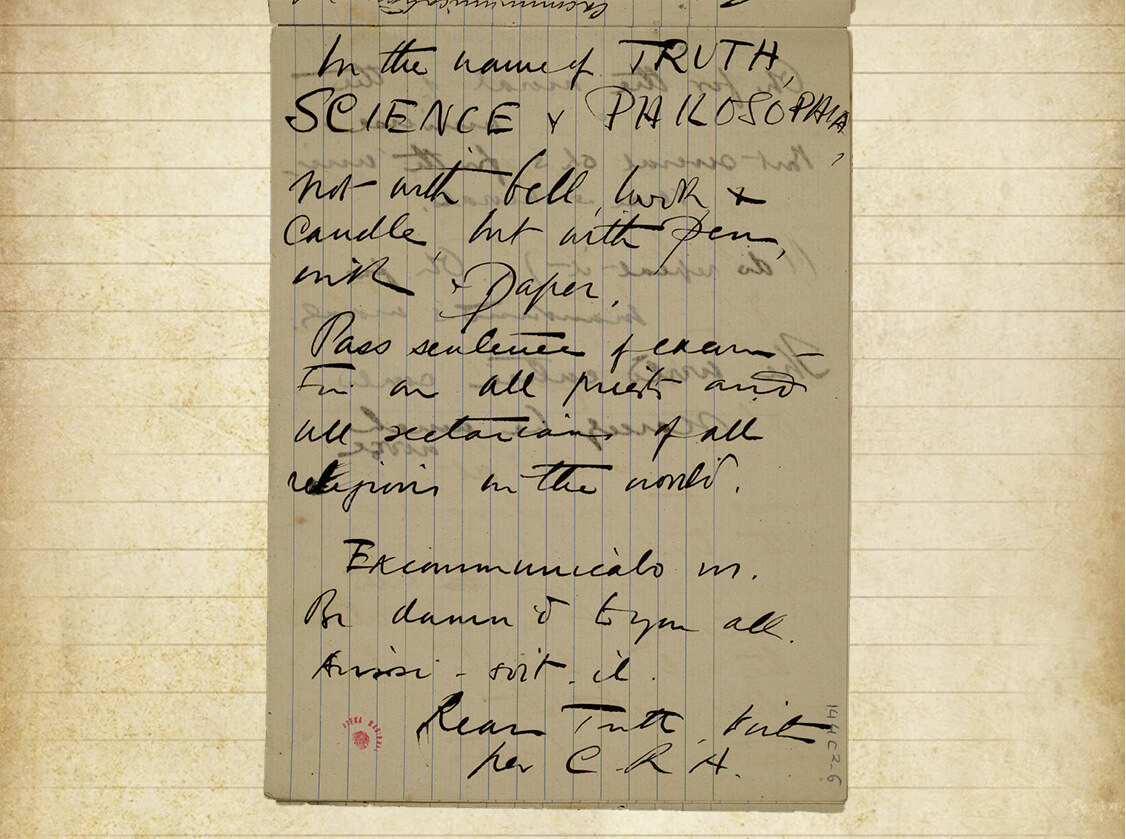 In the name of TRUTH,
SCIENCE & PHILOSOPHIA,
Not with bell, book &
Candle, but with pen,
ink & Paper,
Pass sentence of excom-
on all priests and
all sectarians of all
religions in the world.
Excommunicabo
Be damn'd to you all.
Aussi - soit - il.
Truth,
per C R